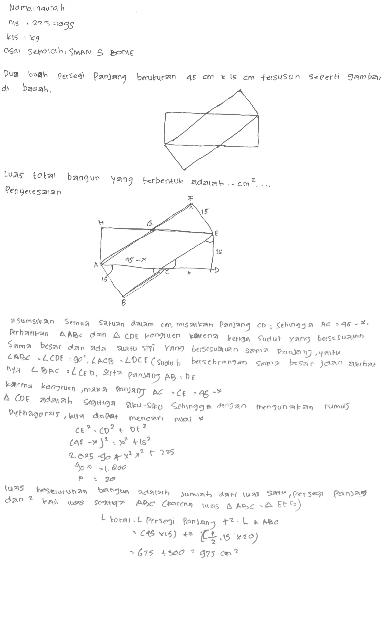 Dua buah Persegi Panjang berukuran 45 cm x 15 cm tersusun seperti gambar
di bawah.
Luas total bangun yang terbentuk adalah ... cm²....
Penyelesaian
F
15
H
G
E
45 - x
15
A
C
x
D
15
B
asumsikan semua satuan dalam cm, misalkan Panjang CD, sehingga AC = 45 - x.
Perhatikan △ABC dan △CDE kongruen karena ketiga sudut yang bersesuaian
sama besar dan ada satu sisi yang bersesuaian sama Panjang, yaitu
∠ABC = ∠CDE = 90°, ∠ACB = ∠DCE (sudut berseberangan sama besar) dan akibat
nya ∠BAC = ∠CED, serta Panjang AB = DE
karena kongruen, maka Panjang AC = CE = 45 - x
△ CDE adalah segitiga siku-siku sehingga dengan menggunakan rumus
Pythagoras, kita dapat mencari nilai x
CE² = CD² + DE²
(45 - x)² = x² + 15²
2.025 - 90x + x² = x² + 225
90x = 1.800
x = 20
luas keseluruhan bangun adalah jumlah dari luas satu persegi panjang
dan 2 kali luas segitiga ABC (karena luas △ ABC = △ EFG)
L total = L Persegi Panjang + 2 . L △ ABC
= (45 x 15) + 2 (½ . 15 x 20)
= 675 + 300 = 975 cm²